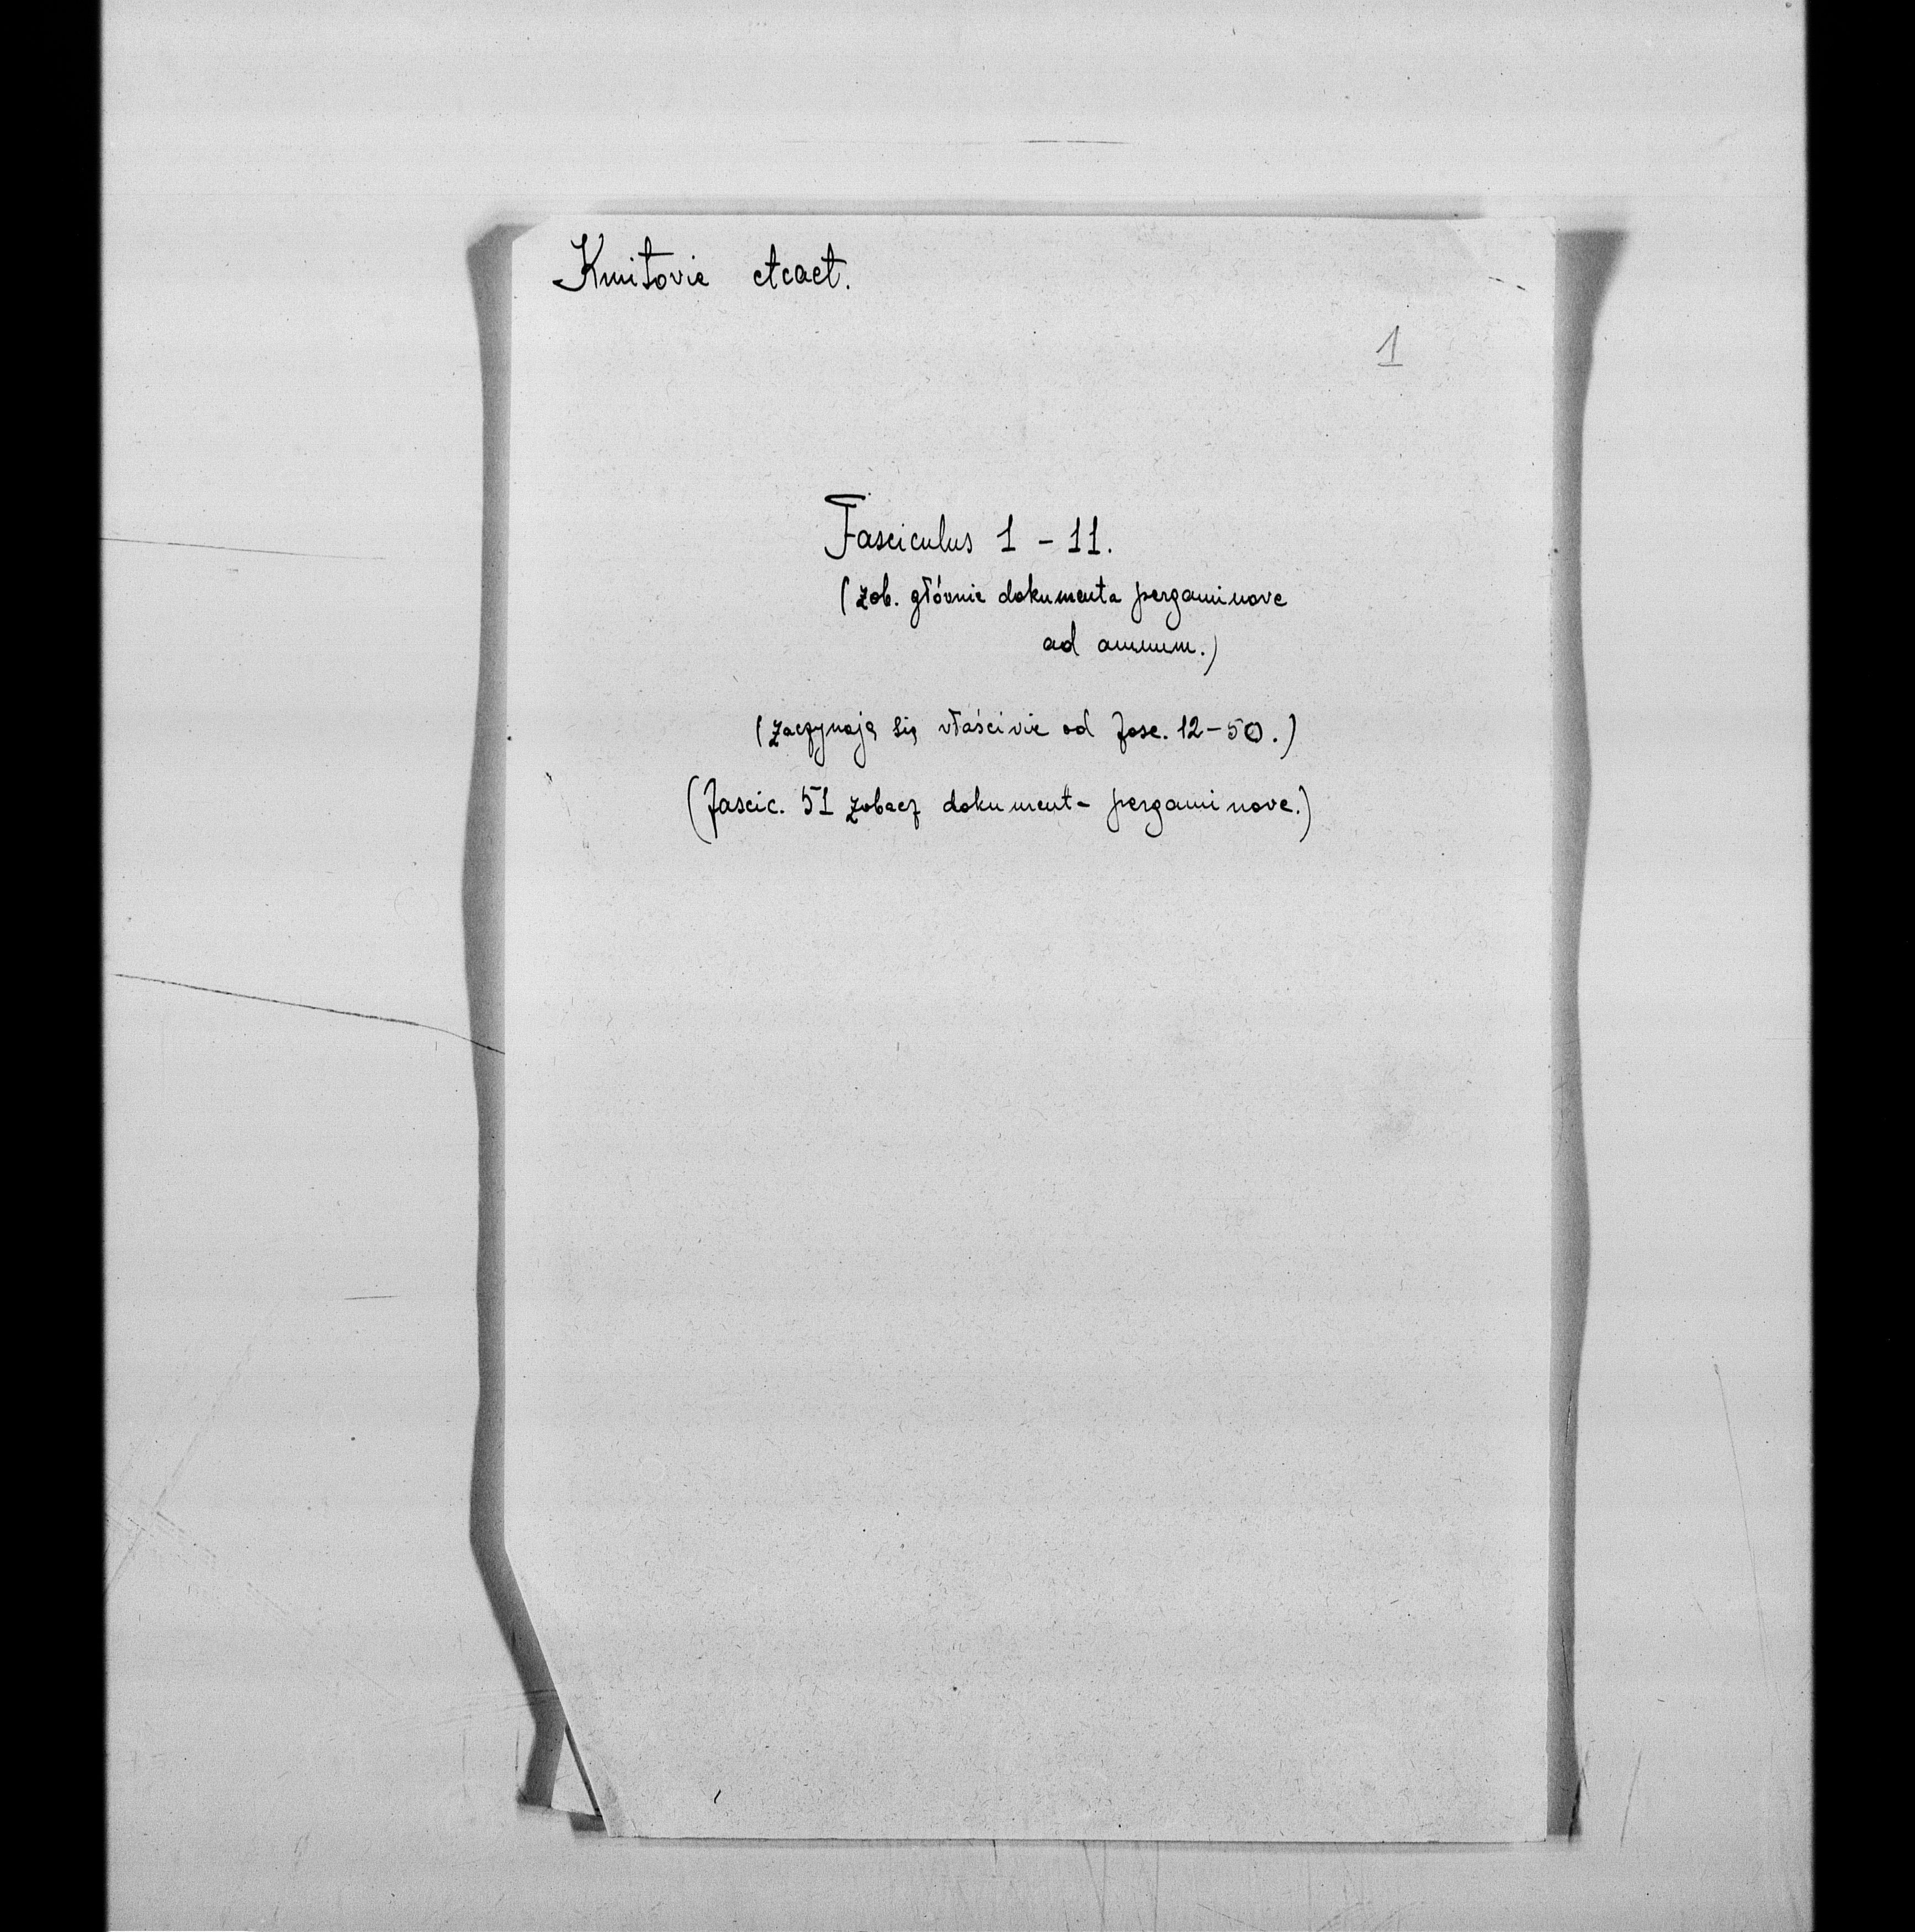 Kmitovie etcaet.
1
Fasciculus 1 – 11.
(zob. głóvnie dokumenta pergaminove
ad annum.)
(zaczynają się vłaścivie od fasc. 12–50.)
(fascic. 51 zobacz dokument- pergaminove.)